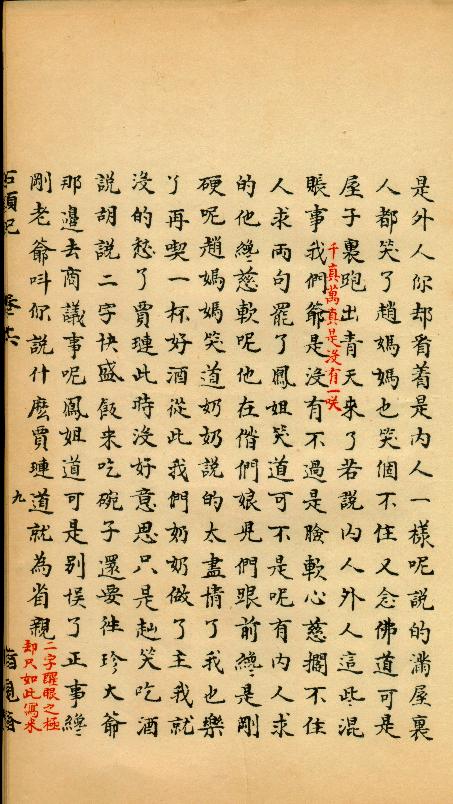 是外人你却看着是内人一樣呢說的滿屋裏
人都笑了趙媽媽也笑個不住又念佛道可是
屋子裏跑出青天来了若說内人外人這些混
賬事我們爺是没有不過是臉軟心慈擱不住
千真萬真是没有一咲
人求兩句罷了鳳姐笑道可不是呢有内人求
的他纔慈軟呢他在偺們娘兒們跟前纔是剛
硬呢趙媽媽笑道奶奶說的太盡情了我也樂
了再喫一杯好酒從此我們奶奶做了主我就
没的愁了賈璉此時没好意思只是赸笑吃酒
說胡說二字快盛飯来吃碗子還要徃珍大爺
那邊去商議事呢鳳姐道可是别悮了正事纔
剛老爺呌你說什麽賈璉道就為省親
二字醒眼之極
却只如此寫来
石頭記
卷十六
九